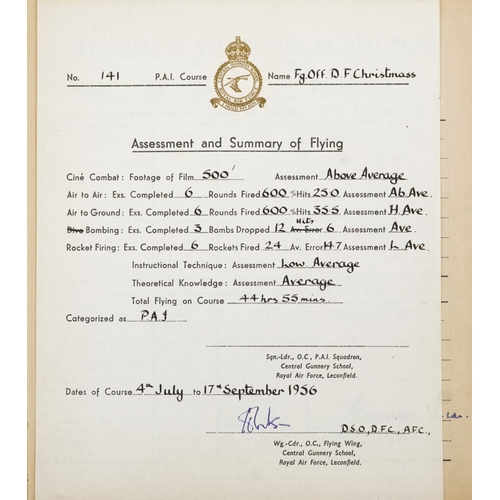 No. 141 P.A.I. Course Name Fg.Off. D F Christmass
Assessment and Summary of Flying
Ciné Combat: Footage of Film 500' Assessment Above Average
Air to Air: Exs. Completed 6 Rounds Fired 600 % Hits 25.0 Assessment Ab.Ave.
Air to Ground: Exs. Completed 6 Rounds Fired 600 % Hits 35.5 Assessment H.Ave.
Dive Bombing: Exs. Completed 3 Bombs Dropped 12 Hits Av. Error 6 Assessment Ave.
Rocket Firing: Exs. Completed 6 Rockets Fired 24 Av. Error 14.7 Assessment L.Ave.
Instructional Technique: Assessment Low Average
Theoretical Knowledge: Assessment Average
Total Flying on Course 44 hrs 55 mins.
Categorized as P.A.I
Sqn.-Ldr., O.C., P.A.I. Squadron,
Central Gunnery School,
Royal Air Force, Leconfield.
Dates of Course 4th July to 17th September 1956
D.S.O., D.F.C., A.F.C.,
Wg.-Cdr., O.C., Flying Wing,
Central Gunnery School,
Royal Air Force, Leconfield.